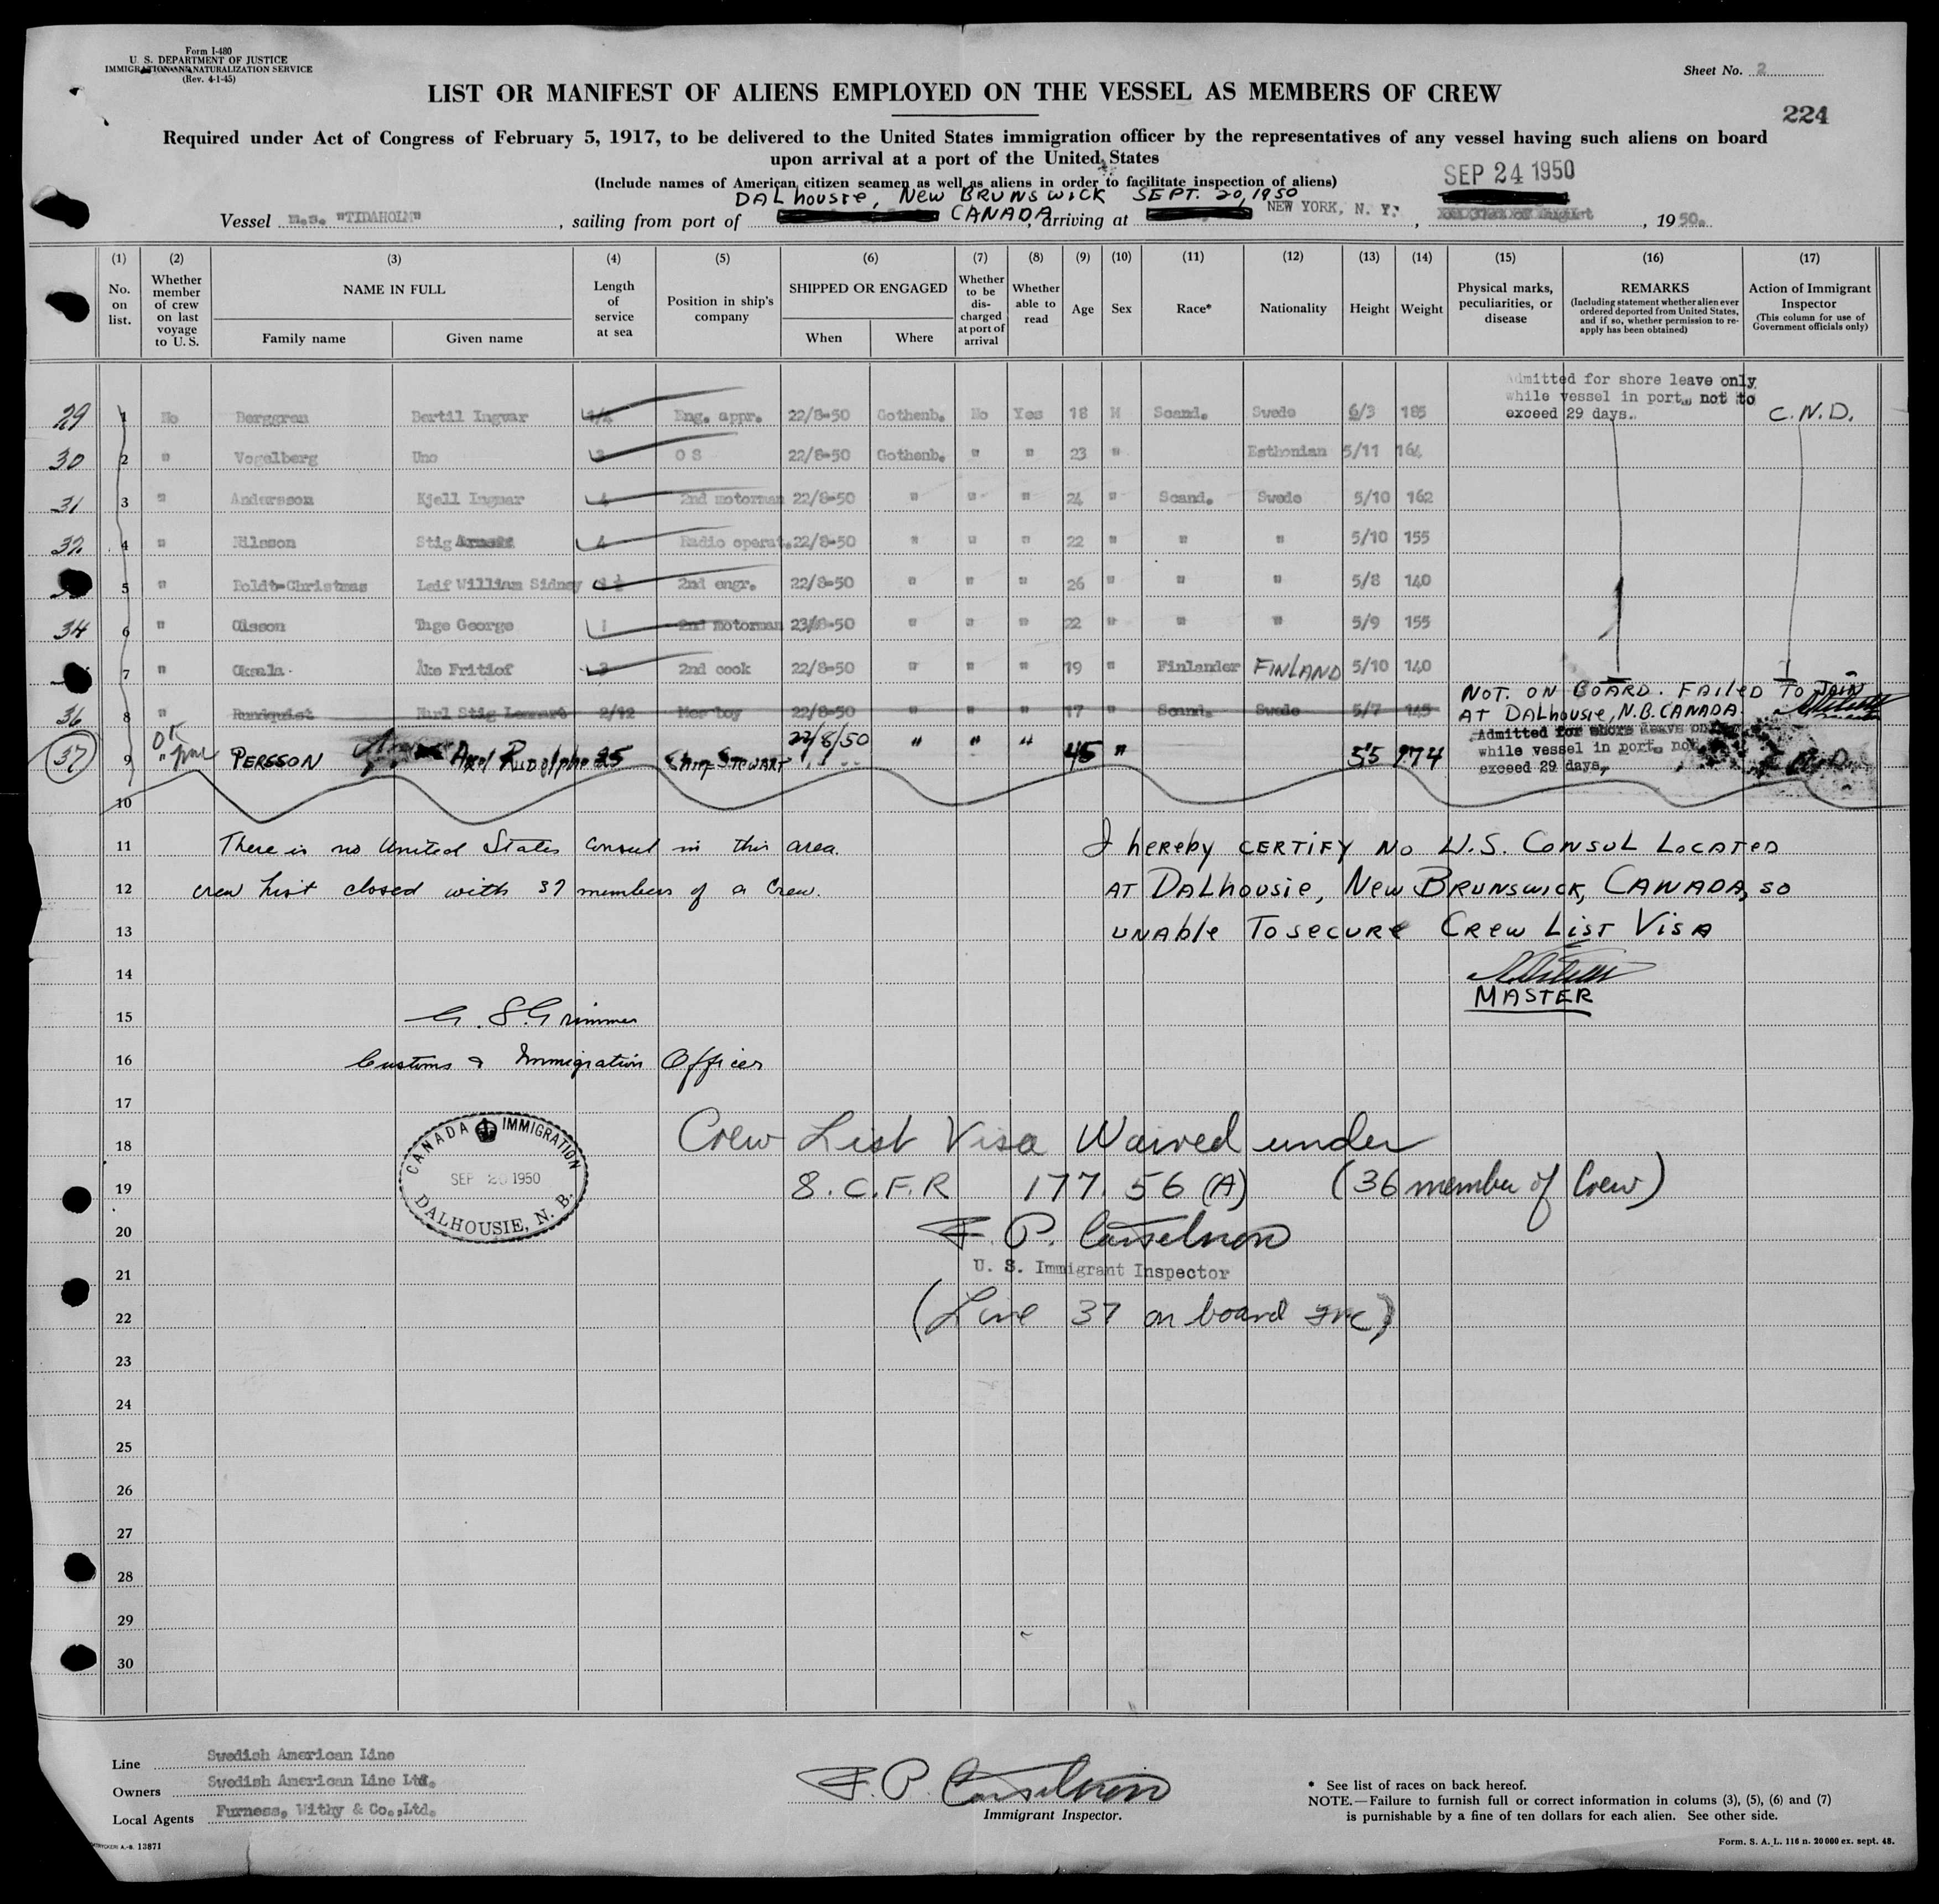 Form I-480
U. S. DEPARTMENT OF JUSTICE
IMMIGRATION AND NATURALIZATION SERVICE
(Rev. 4-1-45)
Sheet No. 2
LIST OR MANIFEST OF ALIENS EMPLOYED ON THE VESSEL AS MEMBERS OF CREW
224
Required under Act of Congress of February 5, 1917, to be delivered to the United States immigration officer by the representatives of any vessel having such aliens on board
upon arrival at a port of the United States
(Include names of American citizen seamen as well as aliens in order to facilitate inspection of aliens)
SEP 24 1950
DALhousie, NEW BRUNSWICK SEPT. 20, 1950
Vessel m.s. "TIDAHOLM", sailing from port of CANADA, arriving at NEW YORK, N. Y., 1950.
(1) (2) (3) (4) (5) (6) (7) (8) (9) (10) (11) (12) (13) (14) (15) (16) (17)
No. on list.
Whether member of crew on last voyage to U. S.
NAME IN FULL
Family name
Given name
Length of service at sea
Position in ship's company
SHIPPED OR ENGAGED
When
Where
Whether to be discharged at port of arrival
Whether able to read
Age
Sex
Race*
Nationality
Height
Weight
Physical marks, peculiarities, or disease
REMARKS
(Including statement whether alien ever ordered deported from United States, and if so, whether permission to reapply has been obtained)
Action of Immigrant Inspector
(This column for use of Government officials only)
Admitted for shore leave only
while vessel in port, not to
exceed 29 days.
29 1 No Berggren Bertil Ingvar Eng. appr. 22/8-50 Gothenb. No Yes 18 M Scand. Swede 6/3 185 C.N.D.
30 2 " Vogelberg Uno 3 O S 22/8-50 Gothenb. " " 23 " Esthonian 5/11 164
31 3 " Andersson Kjell Ingmar 4 2nd motorman 22/8-50 " " " 24 " Scand. Swede 5/10 162
32 4 " Nilsson Stig 4 Radio operat. 22/8-50 " " " 22 " " " 5/10 155
5 " Boldt-Christmas Leif William Sidney 2nd engr. 22/8-50 " " " 26 " " " 5/8 140
34 6 " Olsson Tage George 1 2nd motorman 23/8-50 " " " 22 " " " 5/9 155
7 " Oksala Åke Fritiof 3 2nd cook 22/8-50 " " " 19 " Finlander FINLAND 5/10 140
36 8 " Rundquist Karl Stig Lennart 2/12 Messboy 22/8-50 " " " 17 " Scand. Swede 5/7 145
NOT. ON BOARD. FAILED TO JOIN
AT DALhousie, N.B. CANADA.
37 9 " PERSSON Axel Rudolph 25 Chief STEWART 22/8/50 " " " 45 " 5'5 174
Admitted for shore leave only
while vessel in port, not
exceed 29 days,
10
11 There is no United States Consul in this area.
I hereby CERTIFY NO U.S. CONSUL LOCATED
12 Crew List closed with 37 members of a Crew.
AT DALhousie, NEW BRUNSWICK, CANADA, SO
13 UNAble TO SECURE CREW LIST VISA
14
MASTER
15 G. S. Grimmer
16 Customs & Immigration Officer
17
CANADA IMMIGRATION
SEP 20 1950
DALHOUSIE, N. B.
18 Crew List Visa Waived under
19 8. C.F.R 177. 56 (A) (36 member of Crew)
20 F. P. Casselman
21 U. S. Immigrant Inspector
22 (Line 37 on board)
23
24
25
26
27
28
29
30
Line Swedish American Line
Owners Swedish American Line Ltd.
Local Agents Furness, Withy & Co., Ltd.
F. P. Casselman
Immigrant Inspector.
* See list of races on back hereof.
NOTE.—Failure to furnish full or correct information in colums (3), (5), (6) and (7)
is punishable by a fine of ten dollars for each alien. See other side.
A.-B. 13871
Form. S. A. L. 116 n. 20 000 ex. sept. 48.